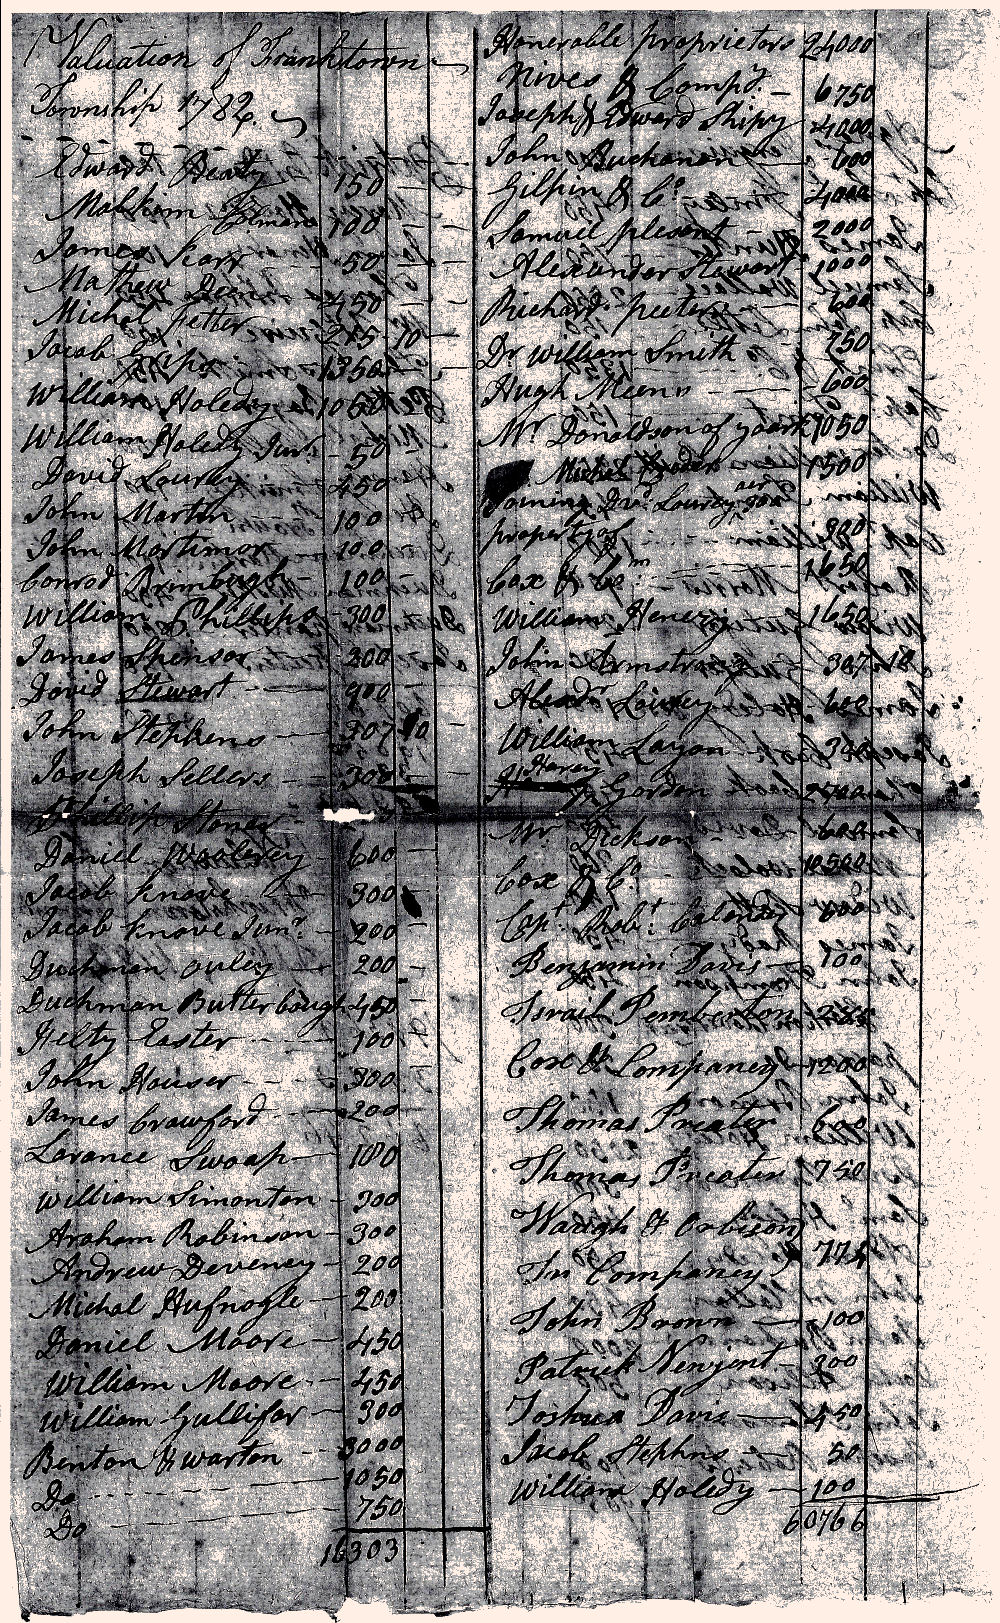 Valuation of Frankstown
Township 1782.
Edward Beaty 150
Malkim 100
James Kerr 50
Mathew Dea 450
Michal fetter 275 10
Jacob 1350
William Holedy 1060
William Holedy Junr. 50
David Lowrey 450
John Martin 100
John Mortimor 100
Conrod 100
William Phillips 300
James Spenser 200
David Stewart 900
John Stephens 307 10
Joseph Sellers 300
Phillip Stoner
Daniel Woolerey 600
Jacob Knave 300
Jacob Knave Junr. 200
Duchman ouley 200
Duchman Butterbough 450
Helty Easter 100
John Houser 300
James Crawford 200
Larance Swoap 100
William Simonton 300
Araham Robinson 300
Andrew Deveney 200
Michal Hufnogle 200
Daniel Moore 450
William Moore 450
William Gullifor 300
Benton & warton 3000
Do 1050
Do 750
16303
Honerable proprietors 24000
Nives & Compy. 6750
Joseph & Edward Shipy 4000
John Buchanan 600
Gilpin & Co. 4000
Samuel plesent 2000
Alexander Stewart 1000
Richard peeters 600
Dr. William Smith 750
Hugh Means 600
Mr. Donaldson of yoark 1050
Michel 1500
Joining Dvd. Lowrey
property of 800
Cox & Com 1650
William Henery 1650
John Armstrong 307 10
Alexdr Lowrey 600
William Layon 300
Harvey
Gordon
Mr. Dickson 600
Cox & Co. 10500
Capt. Robt. 600
Benjamin Davis 100
Israil Pemberton
Cox & Companey 1200
Thomas Preater 600
Thomas Preater 750
Waugh & Orbison
In Companey 774
John Brown 100
Patrick Newjent 300
Joshua Davis 450
Jacob Stephns 50
William Holedy 100
60766